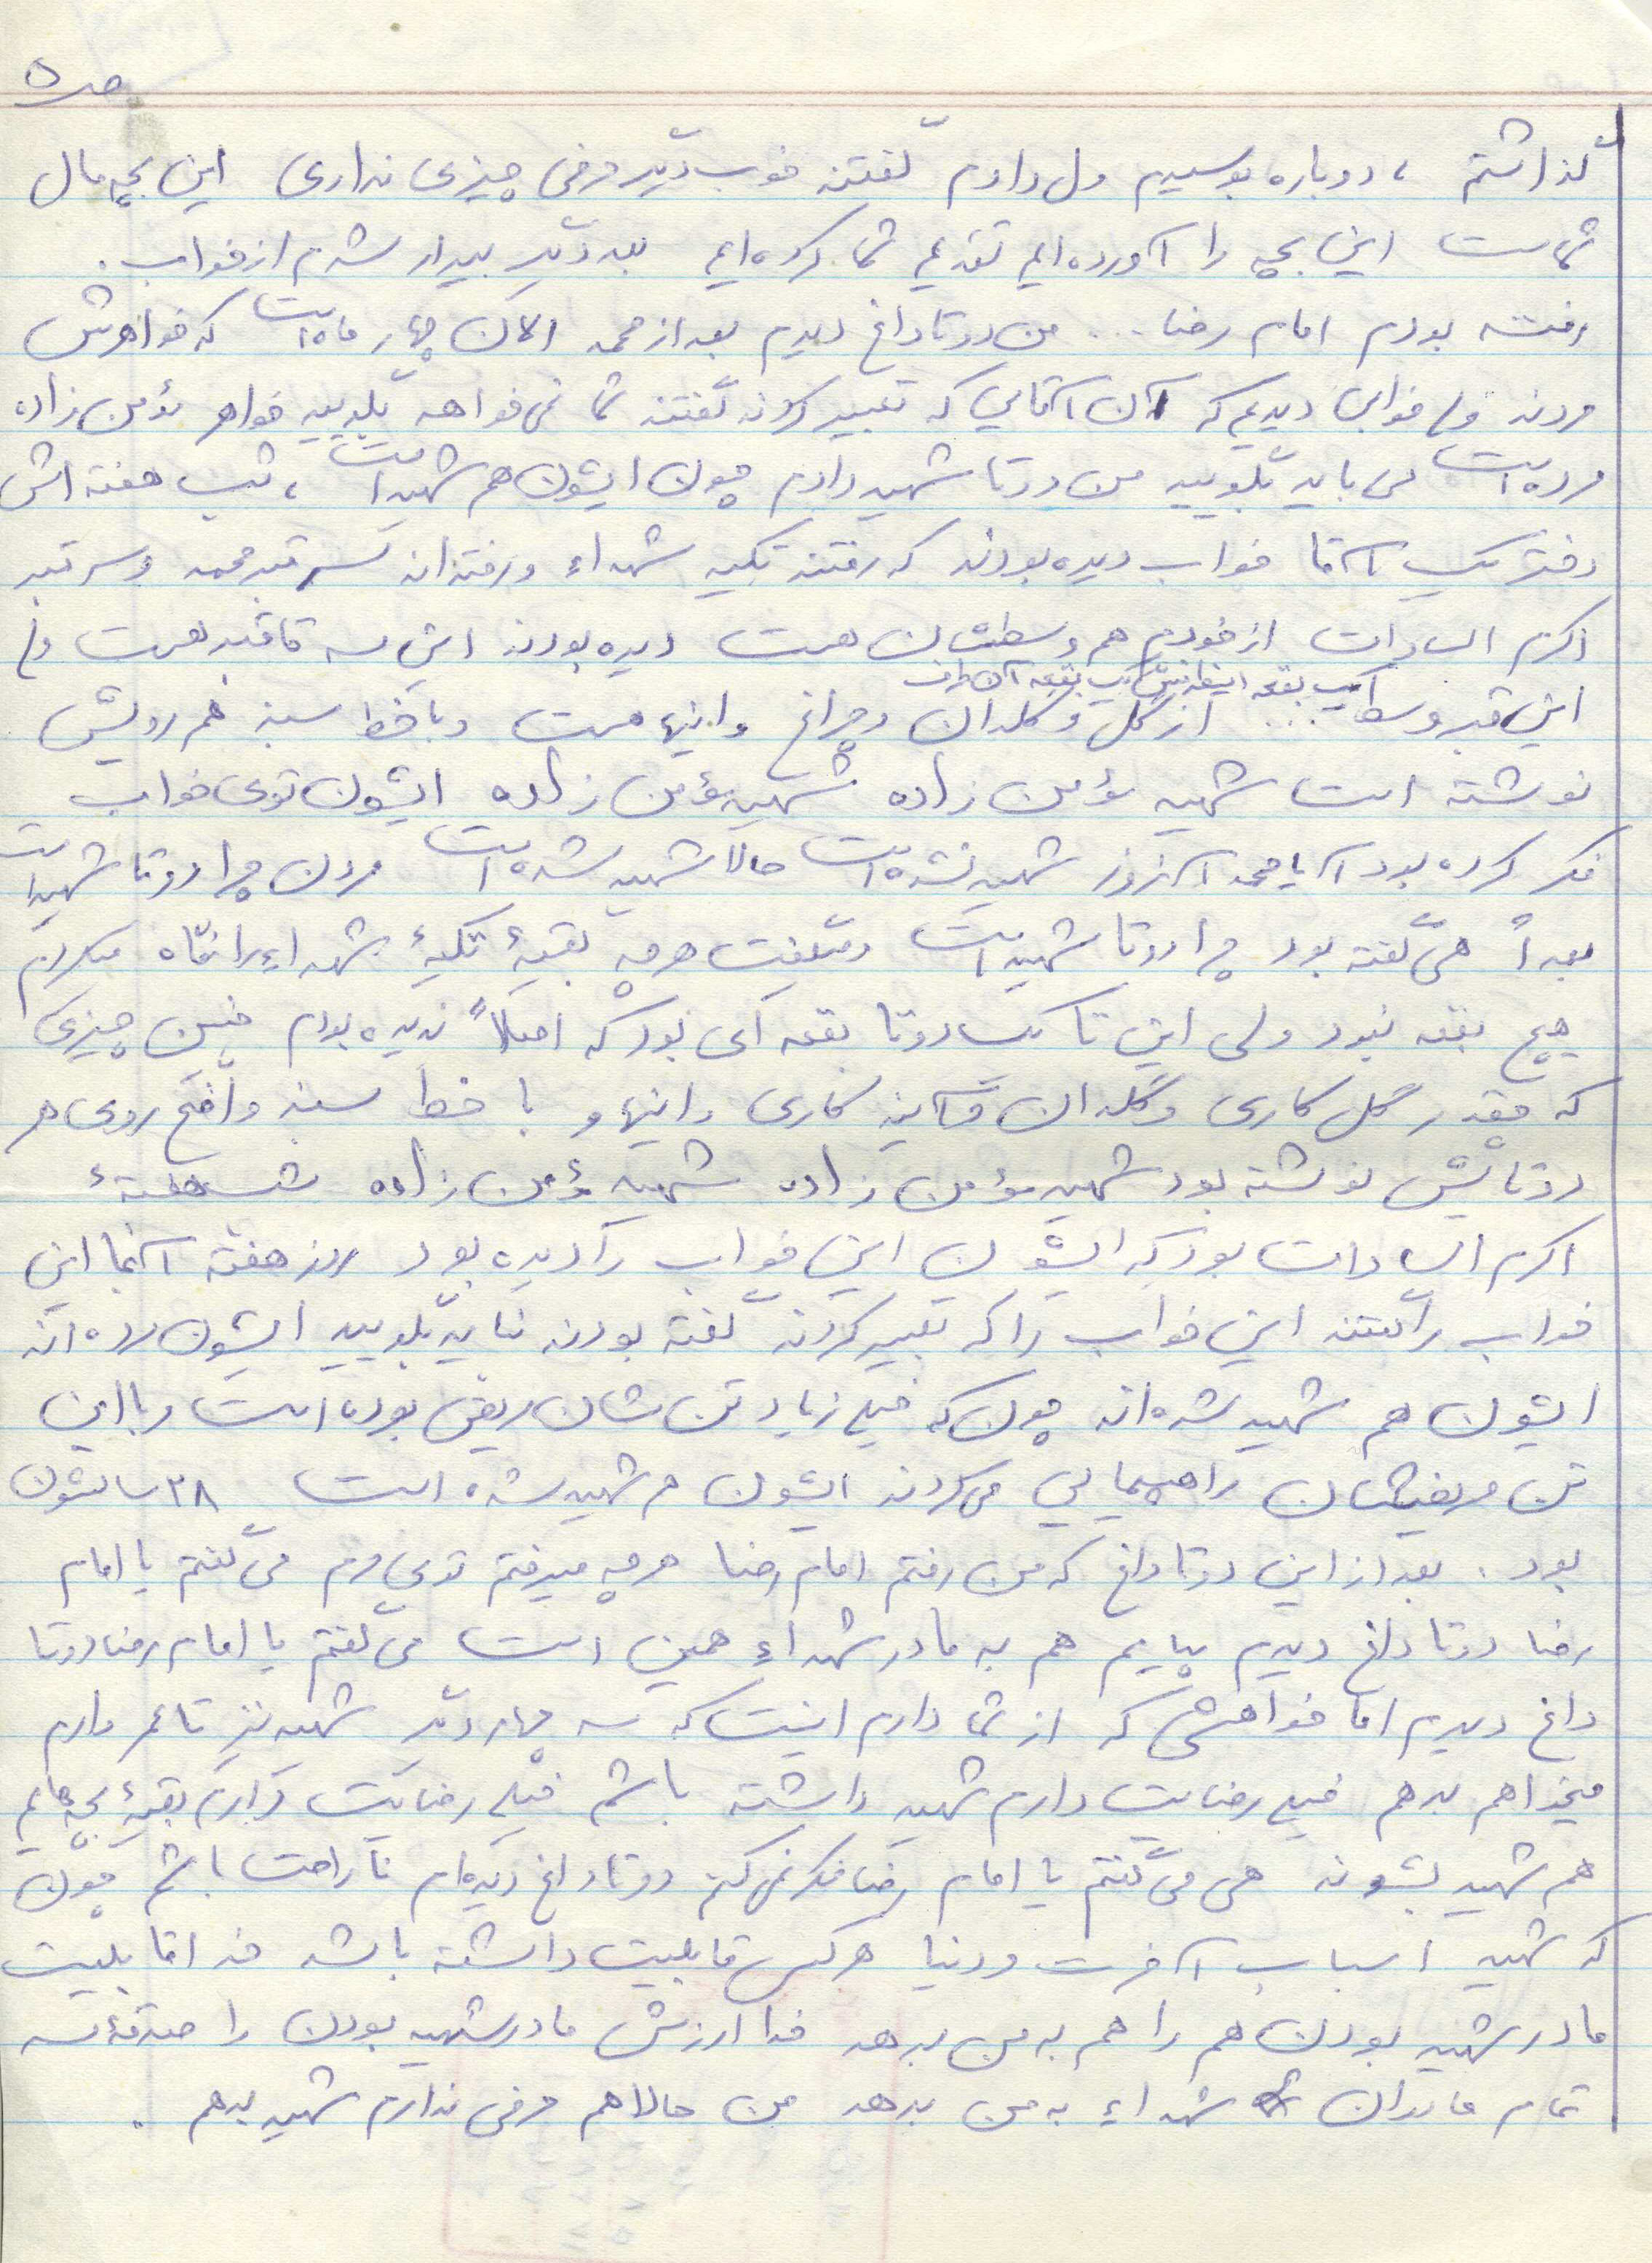 ص ۵
گذاشتم ، دوباره بوسیدم ول دادم گفتند خوب دیگر حرفی چیزی نداری این بچه مال
شماست این بچه را آورده ایم تقدیم شما کرده ایم بعد دیگر بیدار شدم از خواب .
رفته بودم امام رضا ... من دوتا داغ دیدم بعد از محمد الان چهار ماه است که خواهرش
مردند ولی خوابی دیدیم که آن آقایی که تعبیر کردند گفتند شما نمی خواهد بگویید خواهر مؤمن زاده
مرده است می باید بگویید من دوتا شهید دارم چون ایشون هم شهید است ، شب هفته اش
دختر یک آقا خواب دیده بودند که رفتند تکیه شهداء و رفته اند سر قبر محمد و سر قبر
اکرم السادات از خودم هم وسطشان هست دیده بودند این سه تا قبر هست ولی
این قبر وسط ... یک بقعه اینطرفش یک بقعه آن طرف از گل و گلدان و چراغ و اینها هست و با خط سبز هم رویش
نوشته است شهید مؤمن زاده شهید مؤمن زاده ایشون توی خواب
فکر کرده بود آیا محمد آنروز شهید نشده است حالا شهید شده است مردن چرا دوتا شهید است
بعداً هی گفته بود چرا دوتا شهید است و میگفت هر چه بقیهٔ تکیهٔ شهداء را نگاه میکردم
هیچ بقعه نبود ولی این تا یک دوتا بقعه ای بود که اصلاً ندیده بودم چنین چیزی
که چقدر گل کاری و گلدان و آینه کاری و اینها و با خط سبز واضح روی هر
دوتایش نوشته بود شهید مؤمن زاده شهید مؤمن زاده شب هفتهٔ
اکرم السادات بود که ایشون این خواب را دیده بود روز هفته آنجا این
خواب را گفتند این خواب را که تعبیر کردند گفته بودند نباید بگویید ایشون مرده اند
ایشون هم شهید شده اند چون که خیلی زیاد تن شان مریض بوده است و با این
تن مریضشان راهپیمایی می کردند ایشون هم شهید شده است ۳۸ سالشون
بود . بعد از این دوتا داغ که من رفتم امام رضا هر چه میرفتم توی حرم می گفتم یا امام
رضا دوتا داغ دیدم بیایم هم به مادر شهداء همین است می گفتم یا امام رضا دوتا
داغ دیدم اما خواهشی که از شما دارم اینست که سه چهار دیگر شهید نیز تا عمر دارم
میخواهم بدهم خیلی رضایت دارم شهید داشته باشم خیلی رضایت دارم بقیهٔ بچه هایم
هم شهید بشوند هی می گفتم یا امام رضا فکر نمی کنم دوتا داغ دیده ام ناراحت باشم چون
که شهید اسباب آخرت و دنیا هر کس قابلیت داشته باشد خدا قابلیت
مادر شهید بودن هم را هم به من بدهد خدا ارزش مادر شهید بودن را صدقه سه
تمام مادران شهداء به من بدهد من حالا هم حرفی ندارم شهید بدهم .